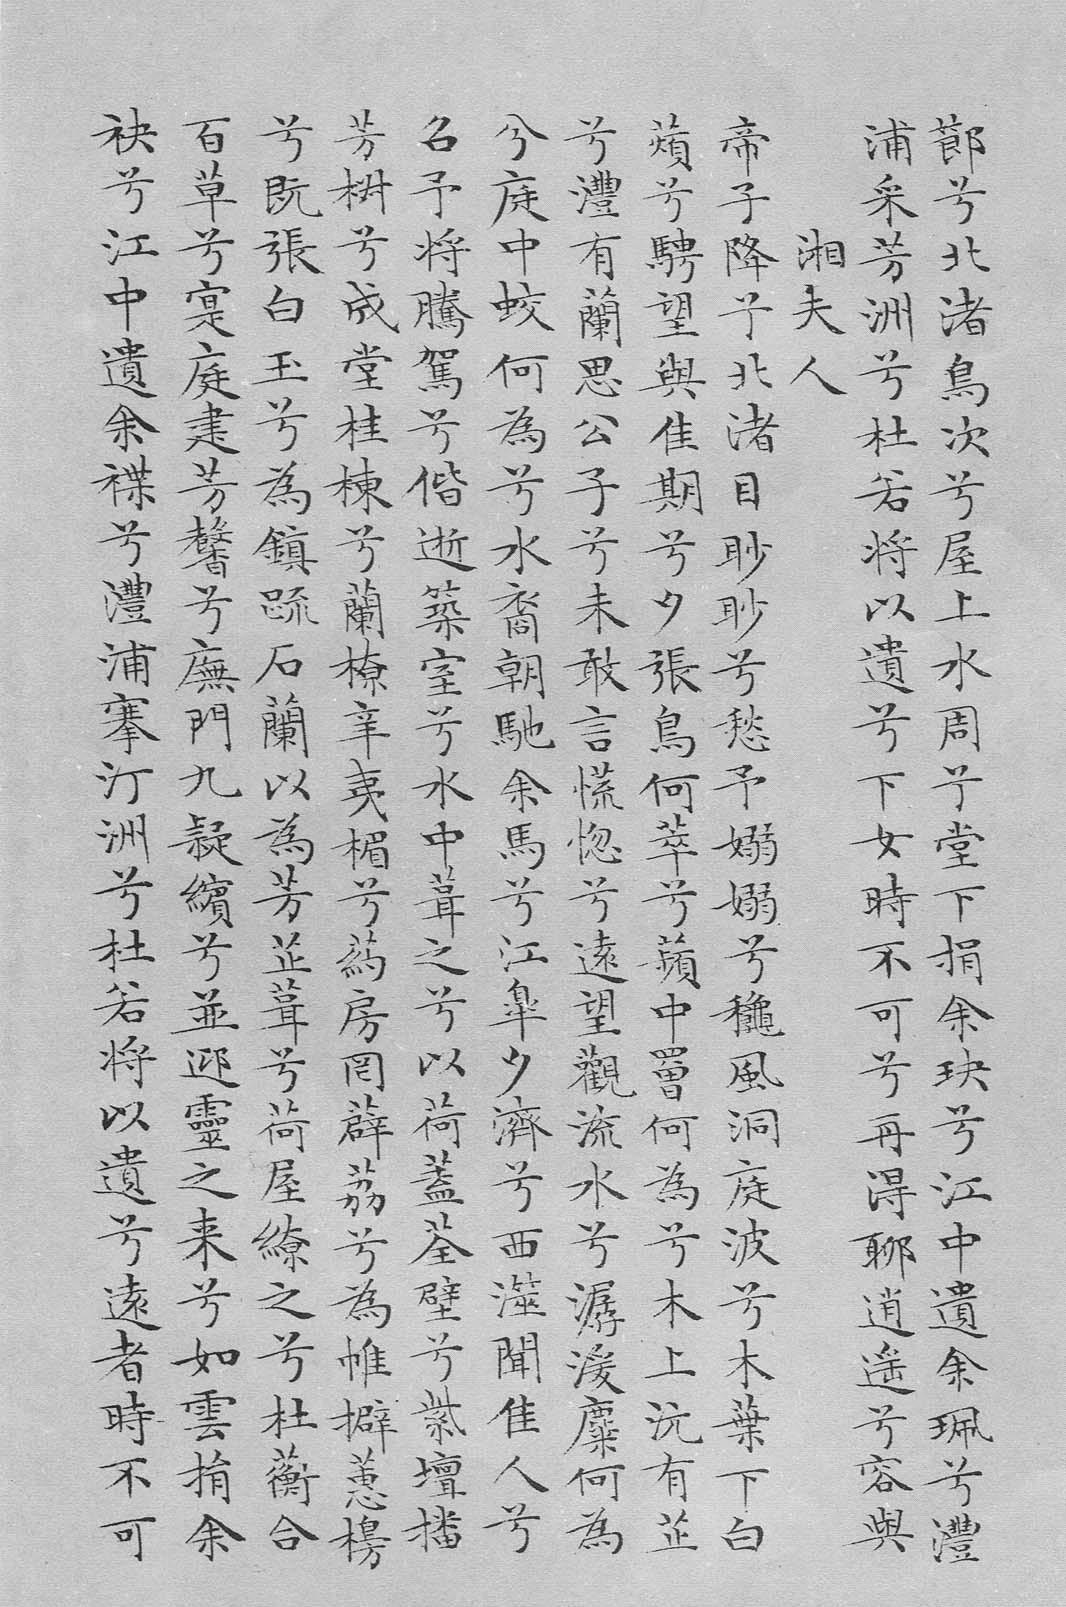 節兮北渚鳥次兮屋上水周兮堂下捐余玦兮江中遺余珮兮澧
浦采芳洲兮杜若将以遺兮下女時不可兮再得聊逍遥兮容與
湘夫人
帝子降兮北渚目眇眇兮愁予嫋嫋兮穐風洞庭波兮木葉下白
薠兮騁望與佳期兮夕張鳥何萃兮蘋中罾何為兮木上沅有芷
兮澧有蘭思公子兮未敢言慌惚兮遠望觀流水兮潺湲麋何為
兮庭中蛟何為兮水裔朝馳余馬兮江皋夕濟兮西澨聞佳人兮
召予将騰駕兮偕逝築室兮水中葺之兮以荷蓋荃壁兮紫壇播
芳椒兮成堂桂棟兮蘭橑辛夷楣兮葯房罔薜荔兮為帷擗蕙櫋
兮既張白玉兮為鎮疏石蘭以為芳芷葺兮荷屋繚之兮杜蘅合
百草兮寔庭建芳馨兮廡門九疑繽兮並迎靈之来兮如雲捐余
袂兮江中遺余褋兮澧浦搴汀洲兮杜若将以遺兮遠者時不可